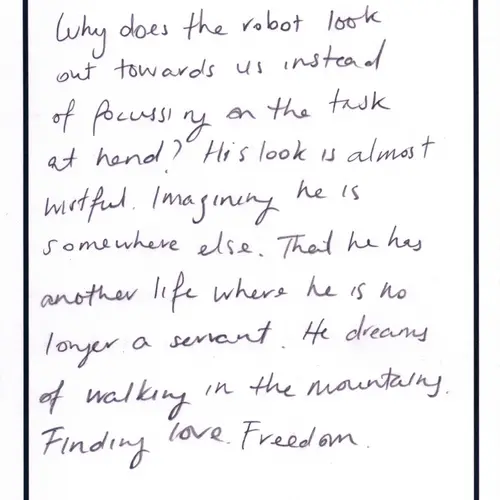 Why does the robot look
out towards us instead
of focussing on the task
at hand? His look is almost
wistful. Imagining he is
somewhere else. That he has
another life where he is no
longer a servant. He dreams
of walking in the mountains.
Finding love. Freedom.